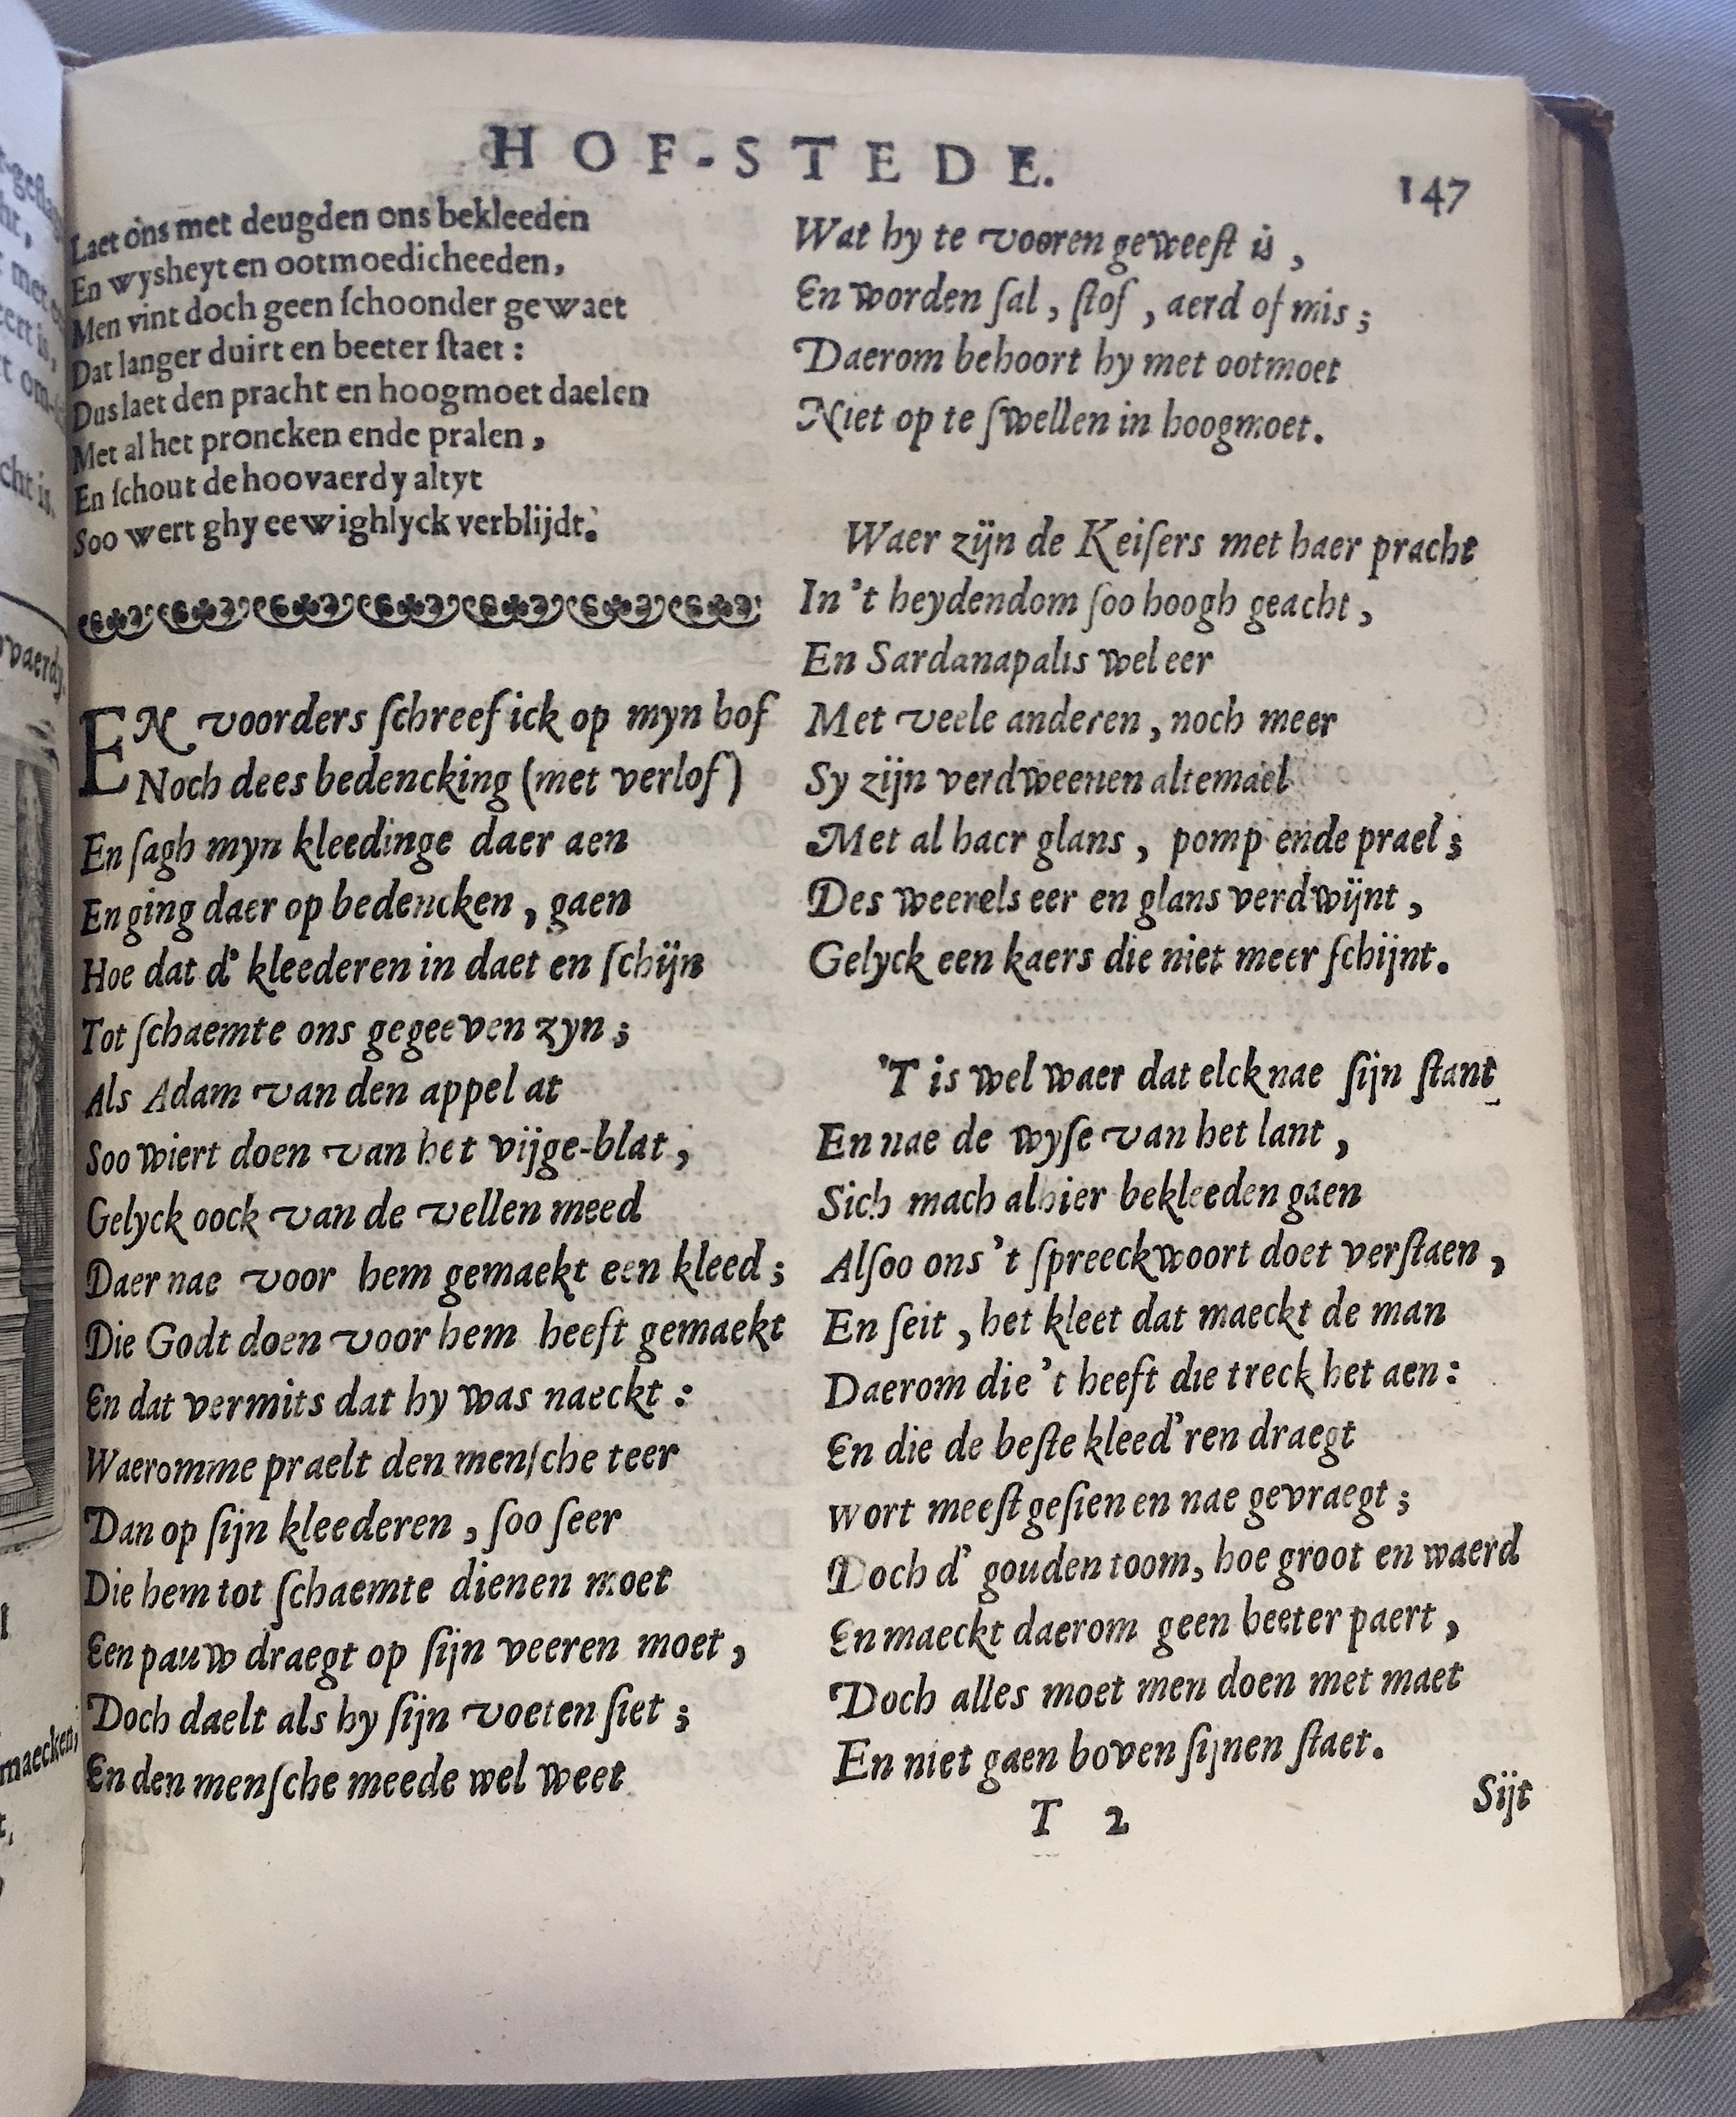 HOF-STEDE.
147
Laet ons met deugden ons bekleeden
En wysheyt en ootmoedicheeden,
Men vint doch geen ſchoonder gewaet
Dat langer duirt en beeter ſtaet:
Dus laet den pracht en hoogmoet daelen
Met al het proncken ende pralen,
En ſchout de hoovaerdy altyt
Soo wert ghy eewighlyck verblijdt.
EN voorders ſchreef ick op myn hof
Noch dees bedencking (met verlof)
En ſagh myn kleedinge daer aen
En ging daer op bedencken, gaen
Hoe dat d' kleederen in daet en ſchijn
Tot ſchaemte ons gegeeven zyn;
Als Adam van den appel at
Soo wiert doen van het vijge-blat,
Gelyck oock van de vellen meed
Daer nae voor hem gemaekt een kleed;
Die Godt doen voor hem heeft gemaekt
En dat vermits dat hy was naeckt:
Waeromme praelt den menſche teer
Dan op ſijn kleederen, ſoo ſeer
Die hem tot ſchaemte dienen moet
Een pauw draegt op ſijn veeren moet,
Doch daelt als hy ſijn voeten ſiet;
En den menſche meede wel weet
Wat hy te vooren geweeſt is,
En worden ſal, ſtof, aerd of mis;
Daerom behoort hy met ootmoet
Niet op te ſwellen in hoogmoet.
Waer zijn de Keiſers met haer pracht
In't heydendom ſoo hoogh geacht,
En Sardanapalis wel eer
Met veele anderen, noch meer
Sy zijn verdweenen altemael
Met al haer glans, pomp ende prael;
Des weerels eer en glans verdwijnt,
Gelyck een kaers die niet meer ſchijnt.
'T is wel waer dat elck nae ſijn ſtant
En nae de wyſe van het lant,
Sich mach alhier bekleeden gaen
Alſoo ons 't ſpreeckwoort doet verſtaen,
En ſeit, het kleet dat maeckt de man
Daerom die 't heeft die treck het aen:
En die de beſte kleed'ren draegt
wort meeſt geſien en nae gevraegt;
Doch d' gouden toom, hoe groot en waerd
En maeckt daerom geen beeter paert,
Doch alles moet men doen met maet
En niet gaen boven ſijnen ſtaet.
T 2
Sijt
maecken;